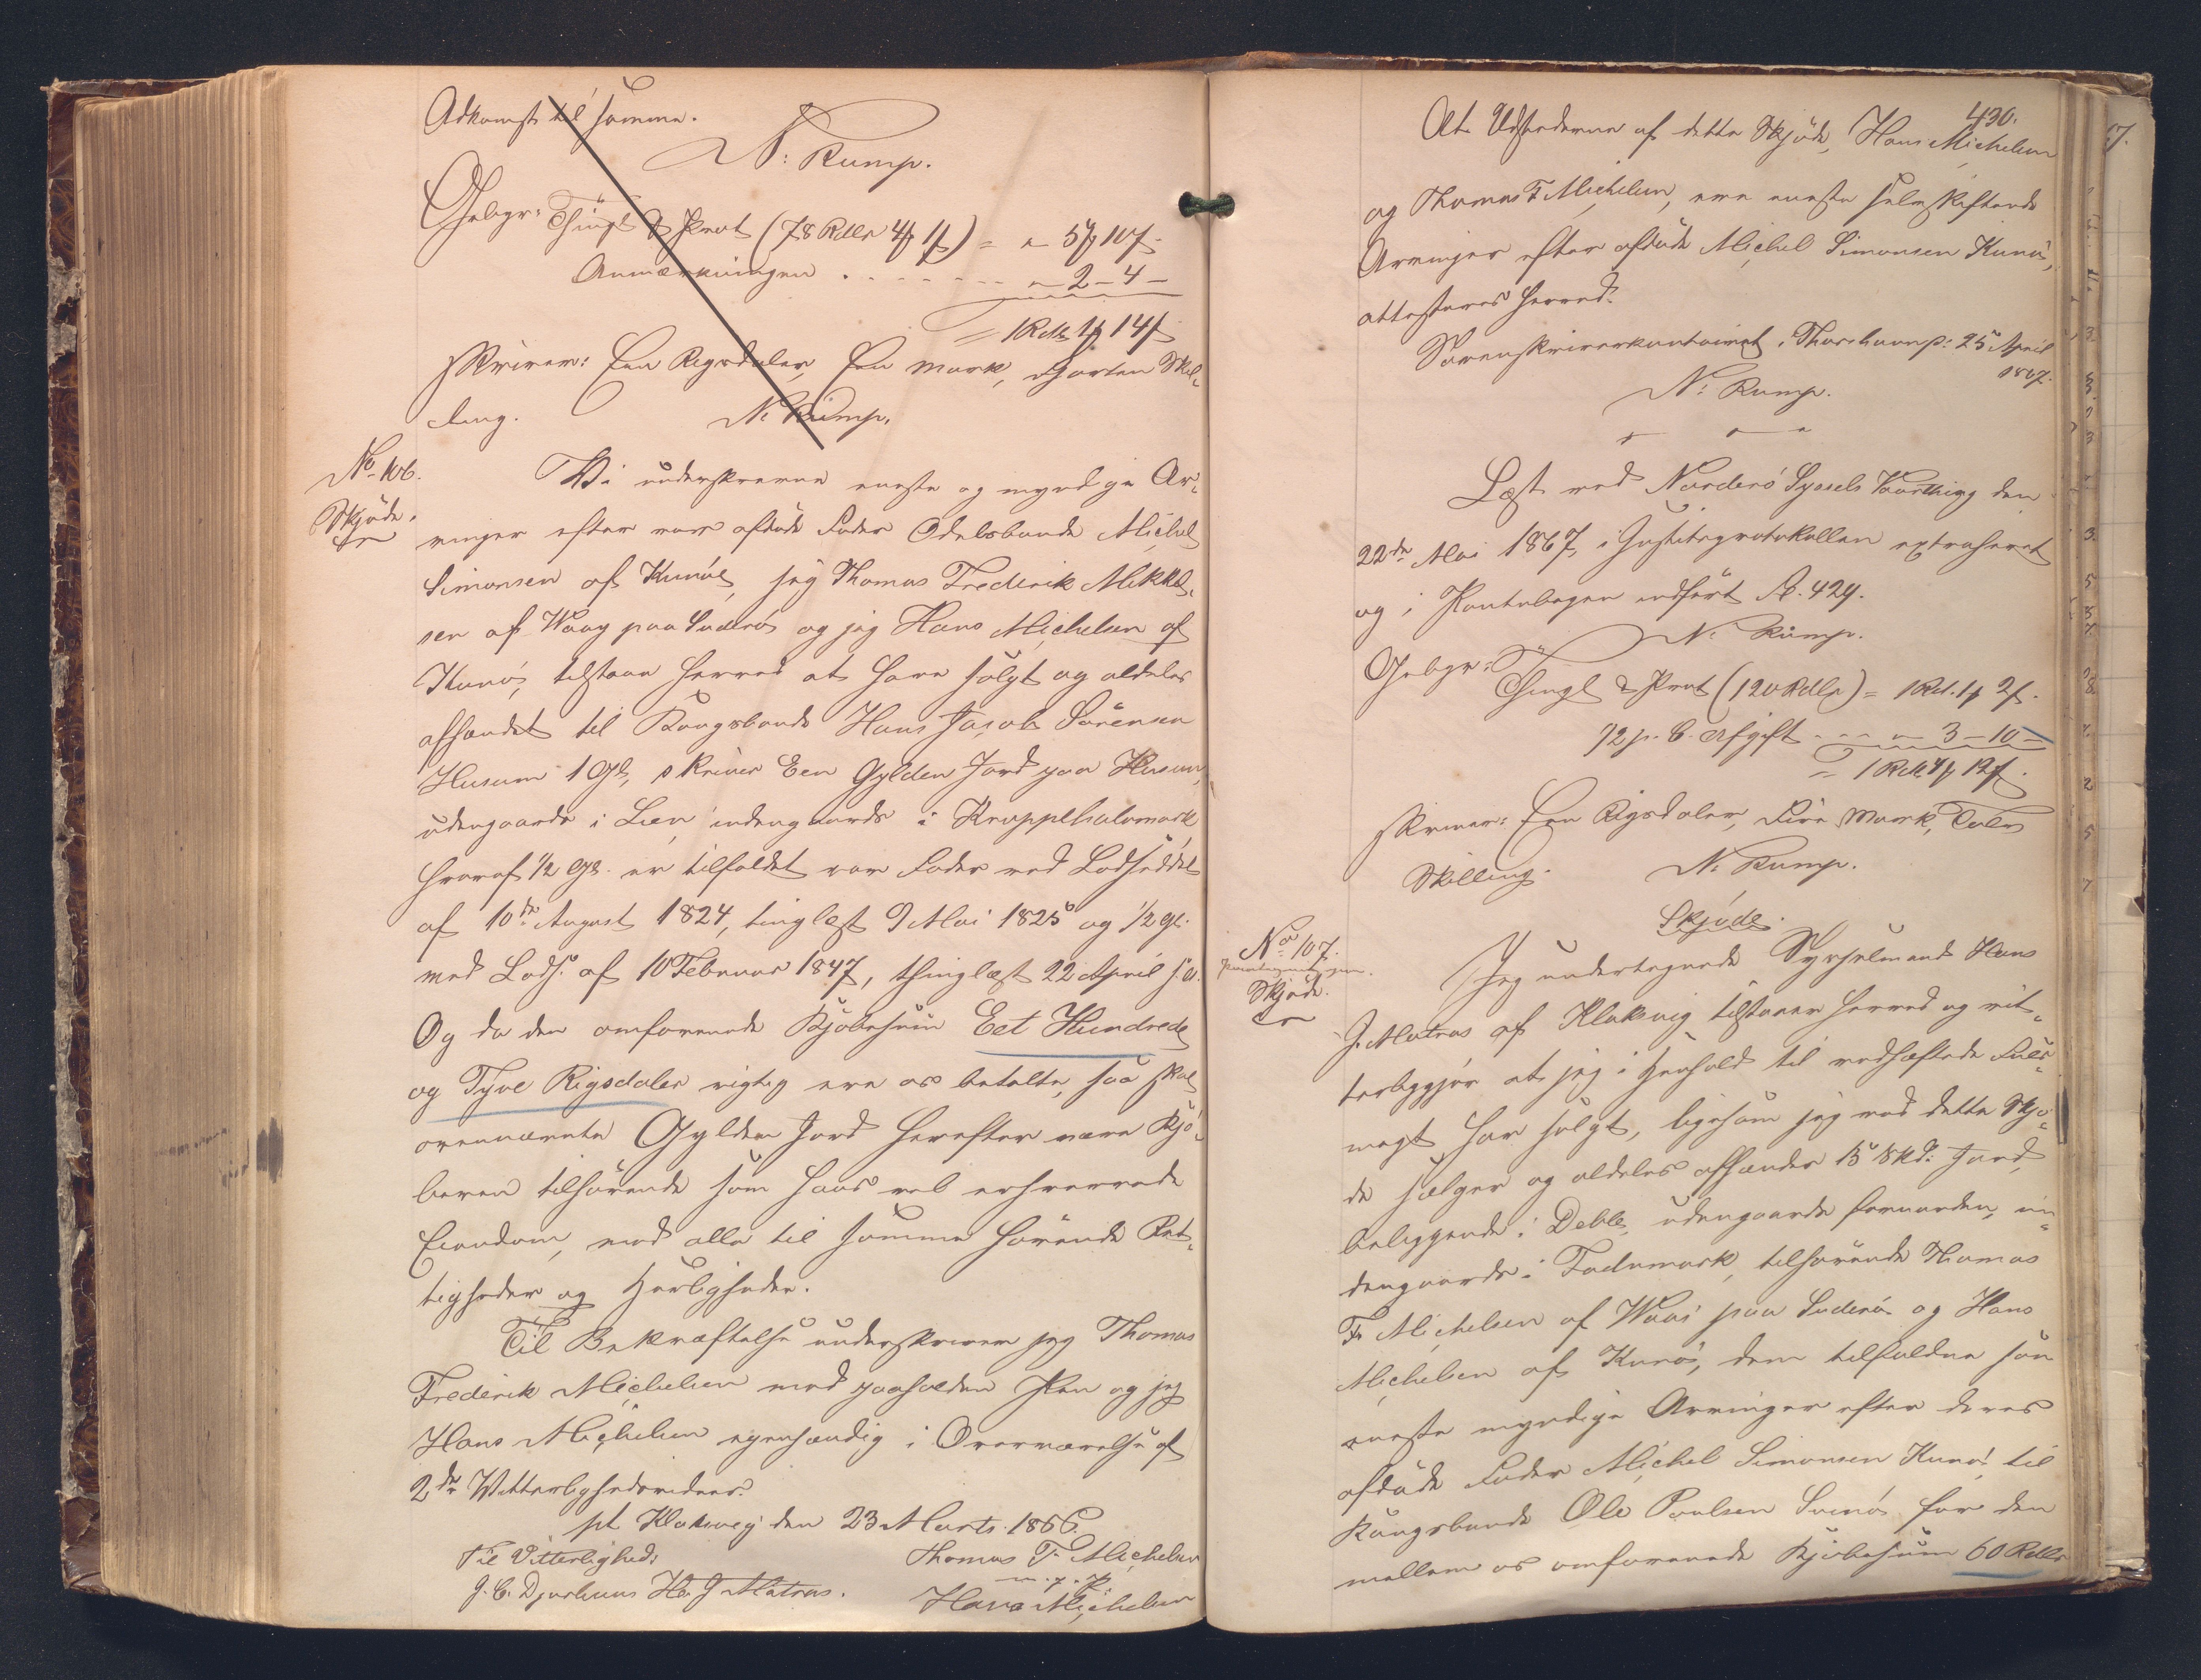 Adkomst til samme.
N: Rump.
Gebyr: Thingl & Prot (78 Rdlr 4 ƒ 1 ƒ) = " 5 ƒ 10 ƒ.
Anmærkningen . . . . . . . " 2 - 4 -
= 1 Rdlr 1 ƒ 14 ƒ
skriver: Een Rigsdaler, Een Mark, Fjorten Skil-
ling. N: Rump.
No. 106.
Skjøde.
Vi underskrevne eneste og myndige Ar-
vinger efter vor afdøde Fader Odelsbonde Michel
Simonsen af Kunøe, jeg Thomas Frederik Mikkel-
sen af Waag paa Suderø og jeg Hans Michelsen af
Kunø, tilstaae herved at have solgt og aldeles
afhændet til Kongsbonde Hans Jacob Sørensen
Husum 1 Gl, skriver Een Gylden Jord paa Husum,
udengaards i Lien, indengaards i Kroppelhalvmark
hvoraf ½ Gl. er tilfaldet vor Fader ved Lodseddel
af 10de August 1824, tinglæst 9 Mai 1825 og ½ gl.
med Lods. af 10 Februar 1847, thinglæst 22 April s. A.
Og da den omforenede Kjøbesum Eet Hundrede
og Tyve Rigsdaler rigtig ere os betalte, saa skal
ovennævnte Gylden Jord herefter være Kjø-
beren tilhørende som hans vel erhvervede
Eiendom, med alle til samme hørende Ret-
tigheder og Herligheder.
Til Bekræftelse underskriver jeg Thomas
Frederik Michelsen med paaholden Pen og jeg
Hans Michelsen egenhændig i Overværelse af
2de Vitterlighedsvidner.
pt Klaksvig den 23 Marts 1866.
Til Vitterlighed: Thomas F. Michelsen
m. p. P.
J. C. Djurhuus H. J. Matras. Hans Michelsen
430.
At Udstederne af dette Skjøde, Hans Michelsen
og Thomas F Michelsen, ere eneste selvskiftende
Arvinger efter afdøde Michel Simonsen Kunø,
attesteres herved.
Sorenskriverkontoiret i Thorshavn p: 25 April
1867.
N: Rump.
Læst ved Norderø Syssels Vaarthing den
22de Mai 1867, i Justitsprotokollen extraheret
og i Pantebogen indført F. 429.
N: Rump.
Gebyr: Thingl & Prot (120 Rdlr) = 1 Rd. 1 ƒ 2 ƒ.
½ p. C. Afgift . . . " 3 - 10 -
= 1 Rdlr 4 ƒ 12 ƒ.
skriver: Een Rigsdaler, Fire Mark, Tolv
Skilling. N: Rump.
Skjøde.
No. 107.
Skjøde.
Jeg undertegnede Sysselmand Hans
J. Matras af Klaksvig tilstaaer herved og vit-
terliggjør at jeg i Henhold til vedhæftede Fuld-
magt har solgt, ligesom jeg ved dette Skjø-
de sælger og aldeles afhænder 15 Skd: Jord,
beliggende i Deble, udengaards fornorden, in-
dengaards i Fadumark, tilhørende Thomas
F. Michelsen af Waai paa Suderø og Hans
Michelsen af Kunø, dem tilfaldne som
eneste myndige Arvinger efter deres
afdøde Fader Michel Simonsen Kunø til
Kongsbonde Ole Poulsen Svinø for den
mellem os omforenede Kjøbesum 60 Rdlr